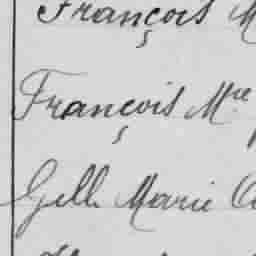 François M
François Mme
Gelle Marie